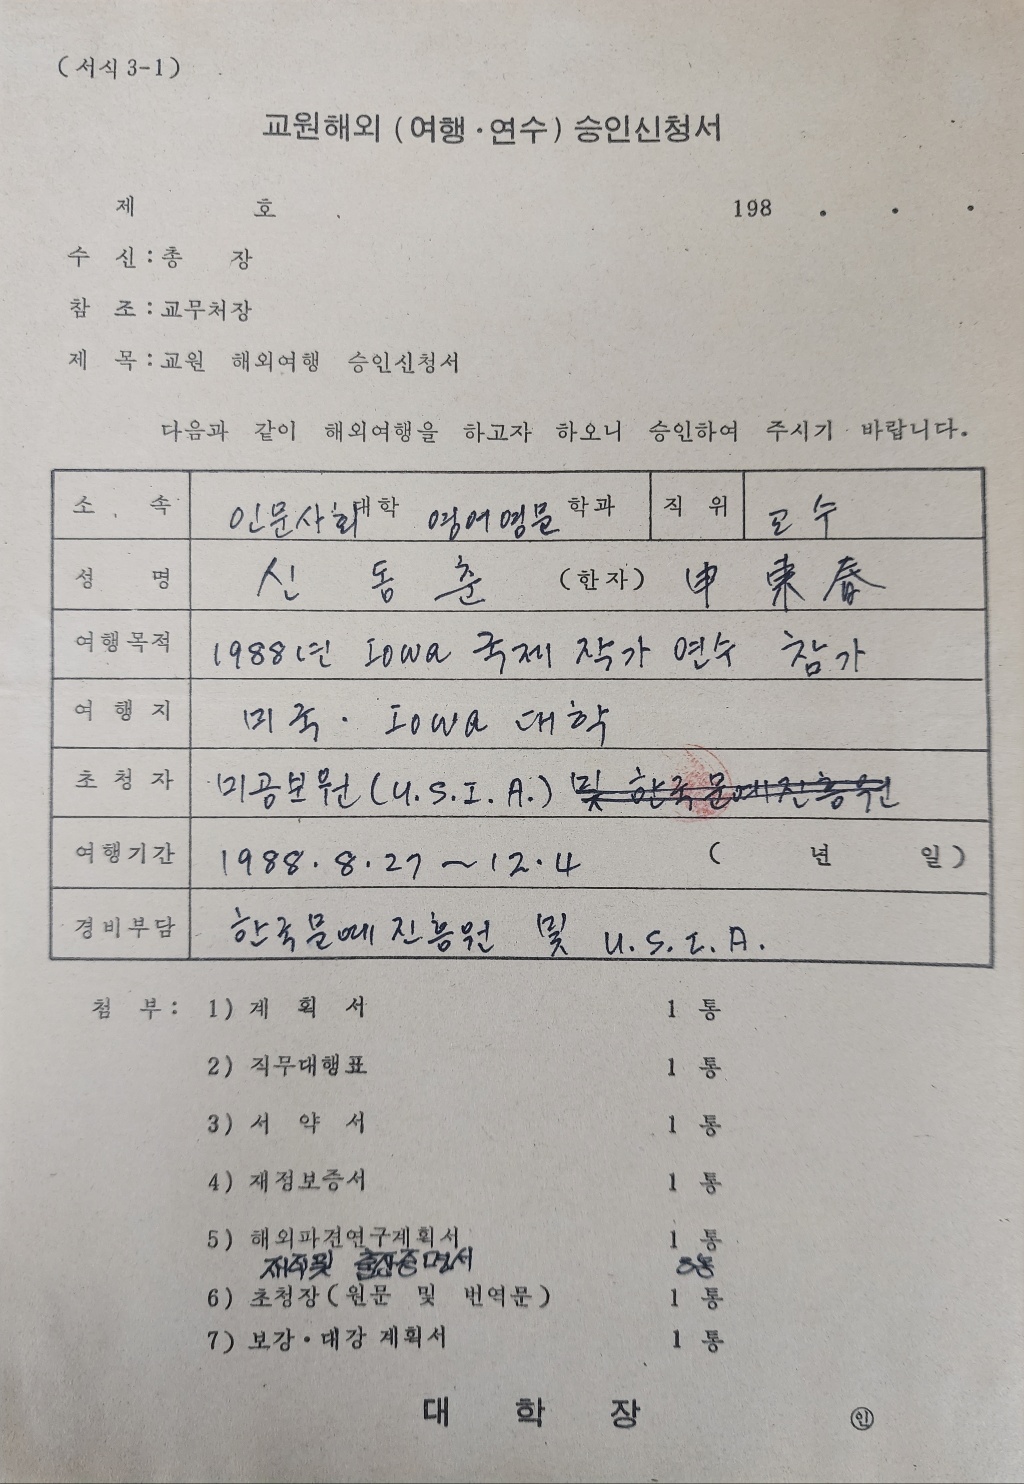 (서식 3-1)
교원해외 (여행·연수) 승인신청서
제 호 198 . . .
수 신 : 총 장
참 조 : 교무처장
제 목 : 교원 해외여행 승인신청서
다음과 같이 해외여행을 하고자 하오니 승인하여 주시기 바랍니다.
소 속 인문사회대학 영어영문학과 직 위 교수
성 명 신 동 춘 (한자) 申 東 春
여행목적 1988년 Iowa 국제 작가 연수 참가
여 행 지 미국. Iowa 대학
초 청 자 미공보원 (U.S.I.A.) 및 한국문예진흥원
여행기간 1988. 8. 27 ~ 12. 4 ( 년 일)
경비부담 한국문예진흥원 및 U.S.I.A.
첨 부 : 1) 계 획 서 1 통
2) 직무대행표 1 통
3) 서 약 서 1 통
4) 재정보증서 1 통
5) 해외파견연구계획서 1 통
및 증명서
6) 초청장 (원문 및 번역문) 1 통
7) 보강·대강 계획서 1 통
대 학 장 ㊞